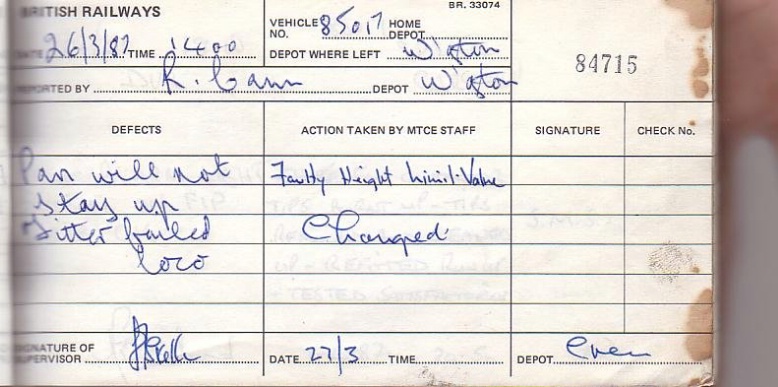 BRITISH RAILWAYS
BR. 33074
VEHICLE NO. 85017 HOME DEPOT
DATE 26/3/87 TIME 1400 DEPOT WHERE LEFT W'gton
84715
REPORTED BY R. Cann DEPOT W'gton
DEFECTS ACTION TAKEN BY MTCE STAFF SIGNATURE CHECK No.
Pan will not Faulty Height Limit Valve
stay up
Fitter failed Changed
loco
SIGNATURE OF SUPERVISOR DATE 27/3 TIME DEPOT Crewe